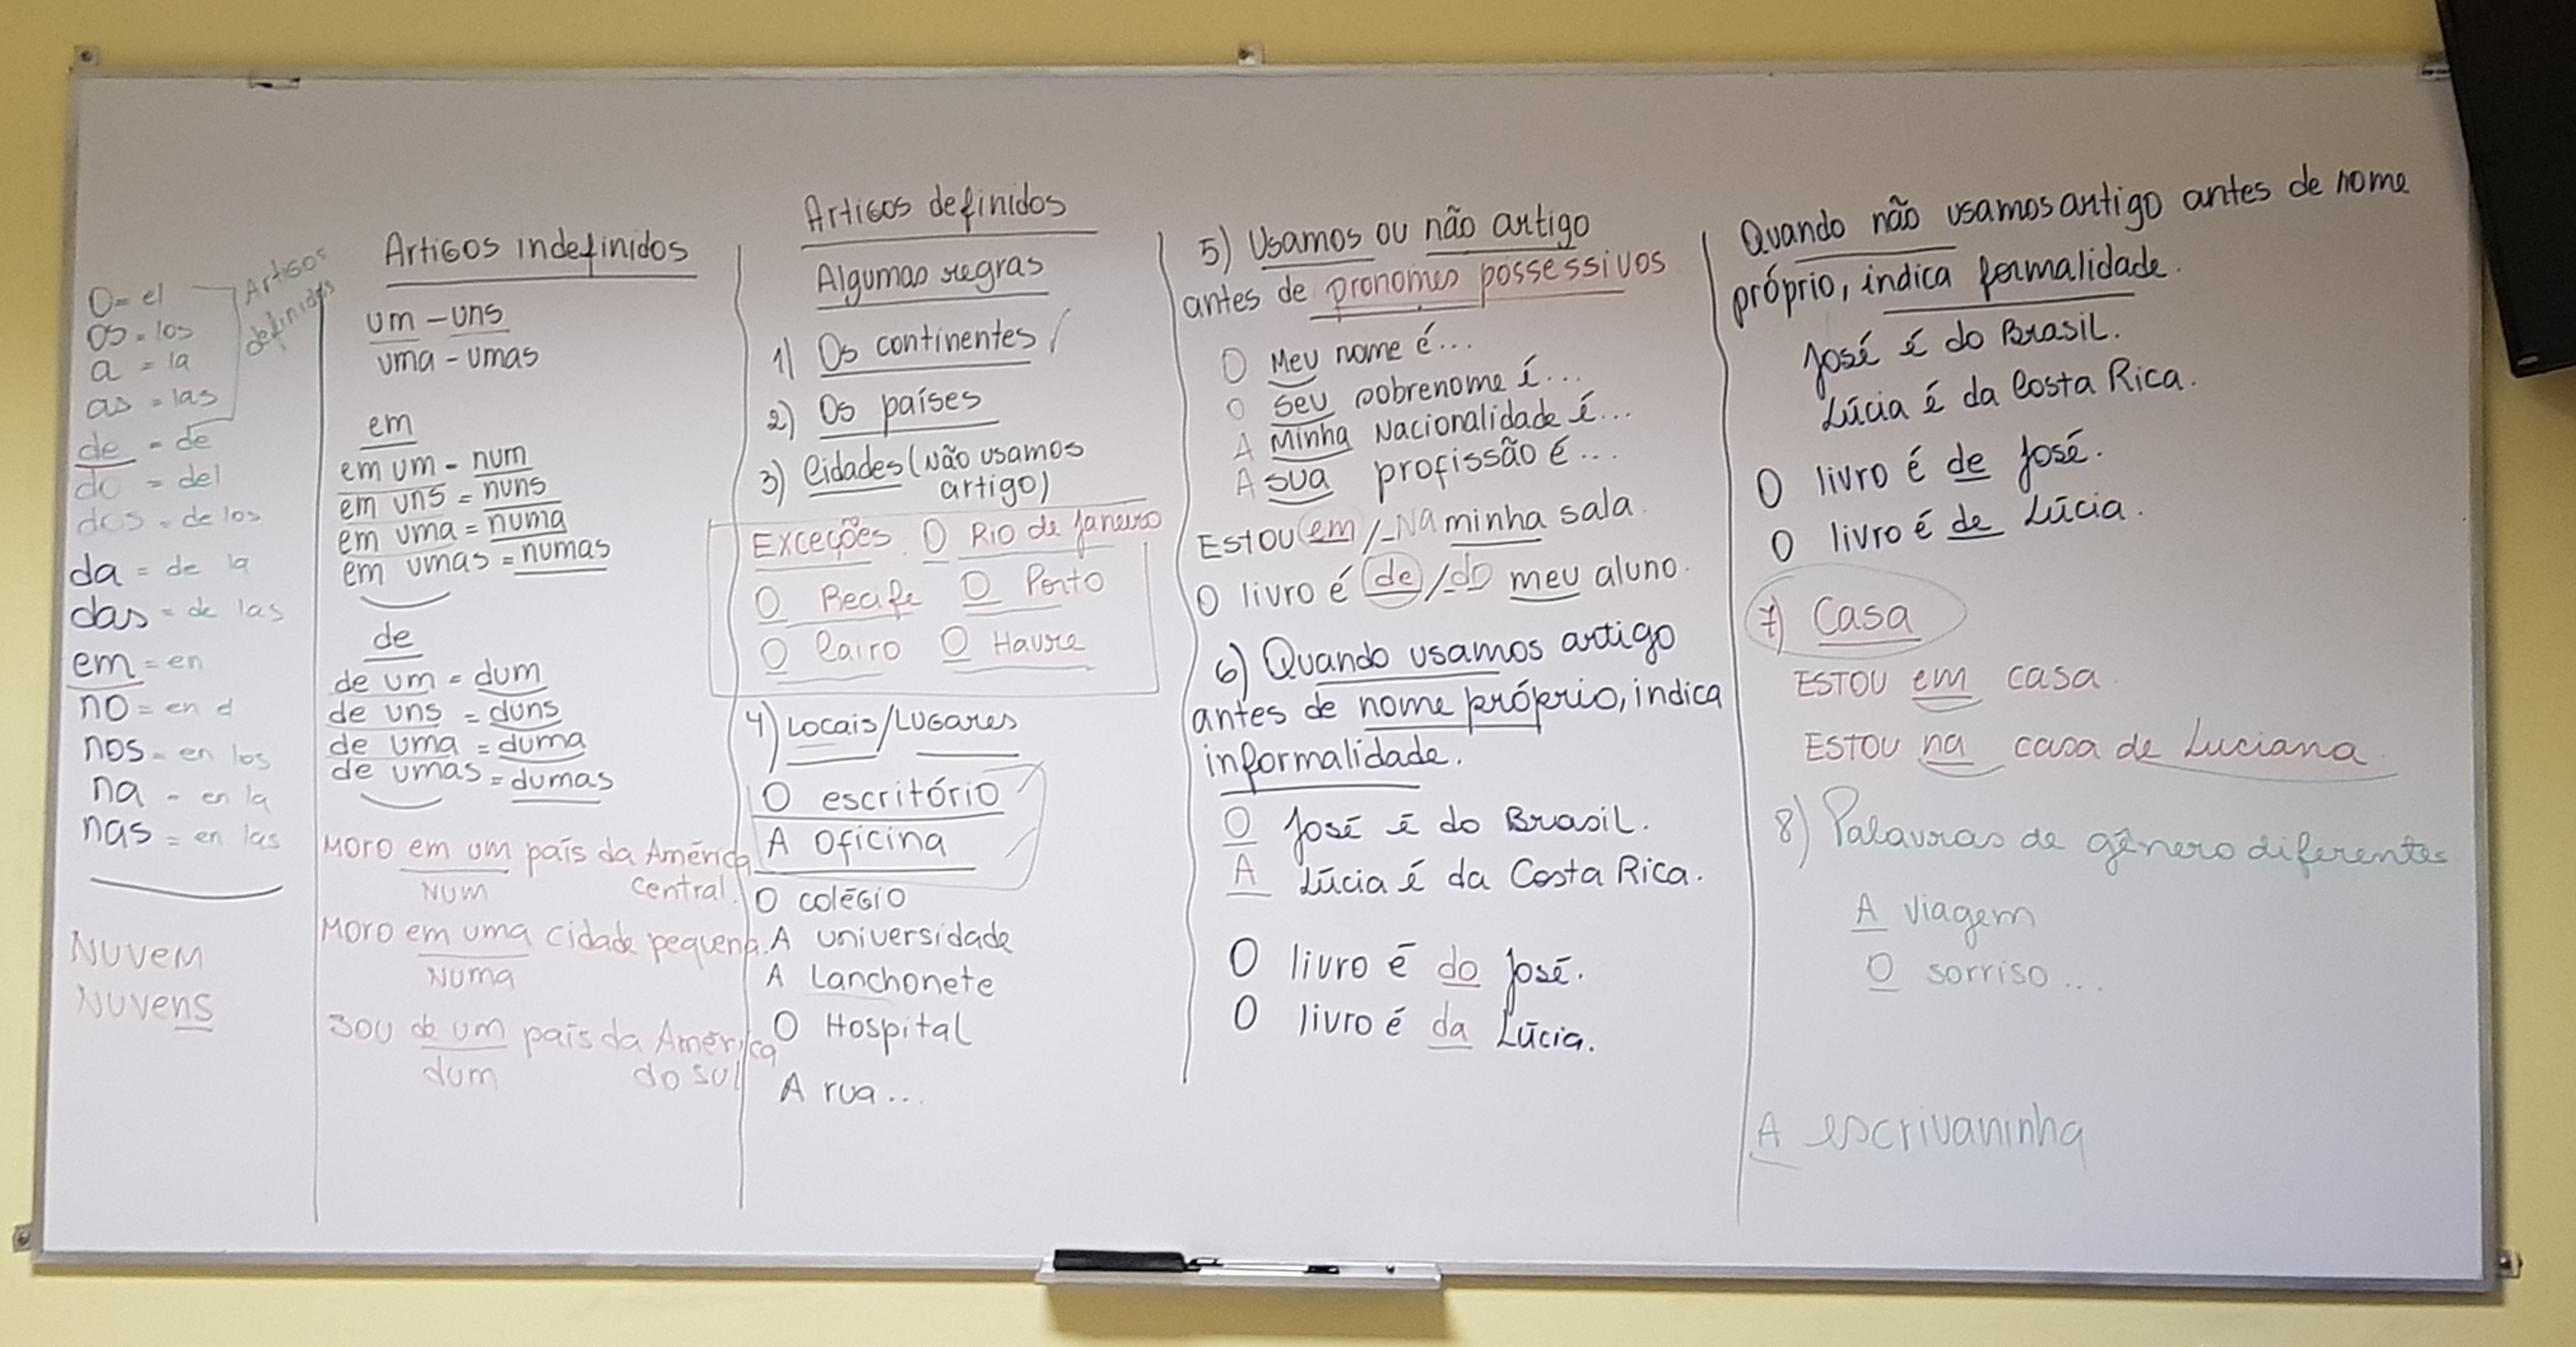 O = el
os = los
a = la
as = las
Artigos
definidos
de = de
do = del
dos = de los
da = de la
das = de las
em = en
no = en el
nos = en los
na = en la
nas = en las
Nuvem
Nuvens
Artigos indefinidos
um - uns
uma - umas
em
em um - num
em uns = nuns
em uma = numa
em umas = numas
de
de um = dum
de uns = duns
de uma = duma
de umas = dumas
Moro em um país da América
Num central.
Moro em uma cidade pequena.
Numa
Sou de um país da América
dum do sul
Artigos definidos
Algumas regras
1) Os continentes /
2) Os países
3) Cidades (Não usamos
artigo)
Exceções. O Rio de Janeiro
O Recife O Porto
O Cairo O Havre
4) Locais/Lugares
O escritório
A oficina
O colégio
A universidade
A Lanchonete
O Hospital
A rua...
5) Usamos ou não artigo
antes de pronomes possessivos
O Meu nome é...
O seu sobrenome é...
A Minha Nacionalidade é...
A sua profissão é...
Estou em /_Na minha sala.
O livro é de /_do meu aluno.
6) Quando usamos artigo
antes de nome próprio, indica
informalidade.
O José é do Brasil.
A Lúcia é da Costa Rica.
O livro é do José.
O livro é da Lúcia.
Quando não usamos artigo antes de nome
próprio, indica formalidade.
José é do Brasil.
Lúcia é da Costa Rica.
O livro é de José.
O livro é de Lúcia.
7) Casa
Estou em casa.
Estou na casa de Luciana.
8) Palavras de gênero diferentes
A viagem
O sorriso...
A escrivaninha